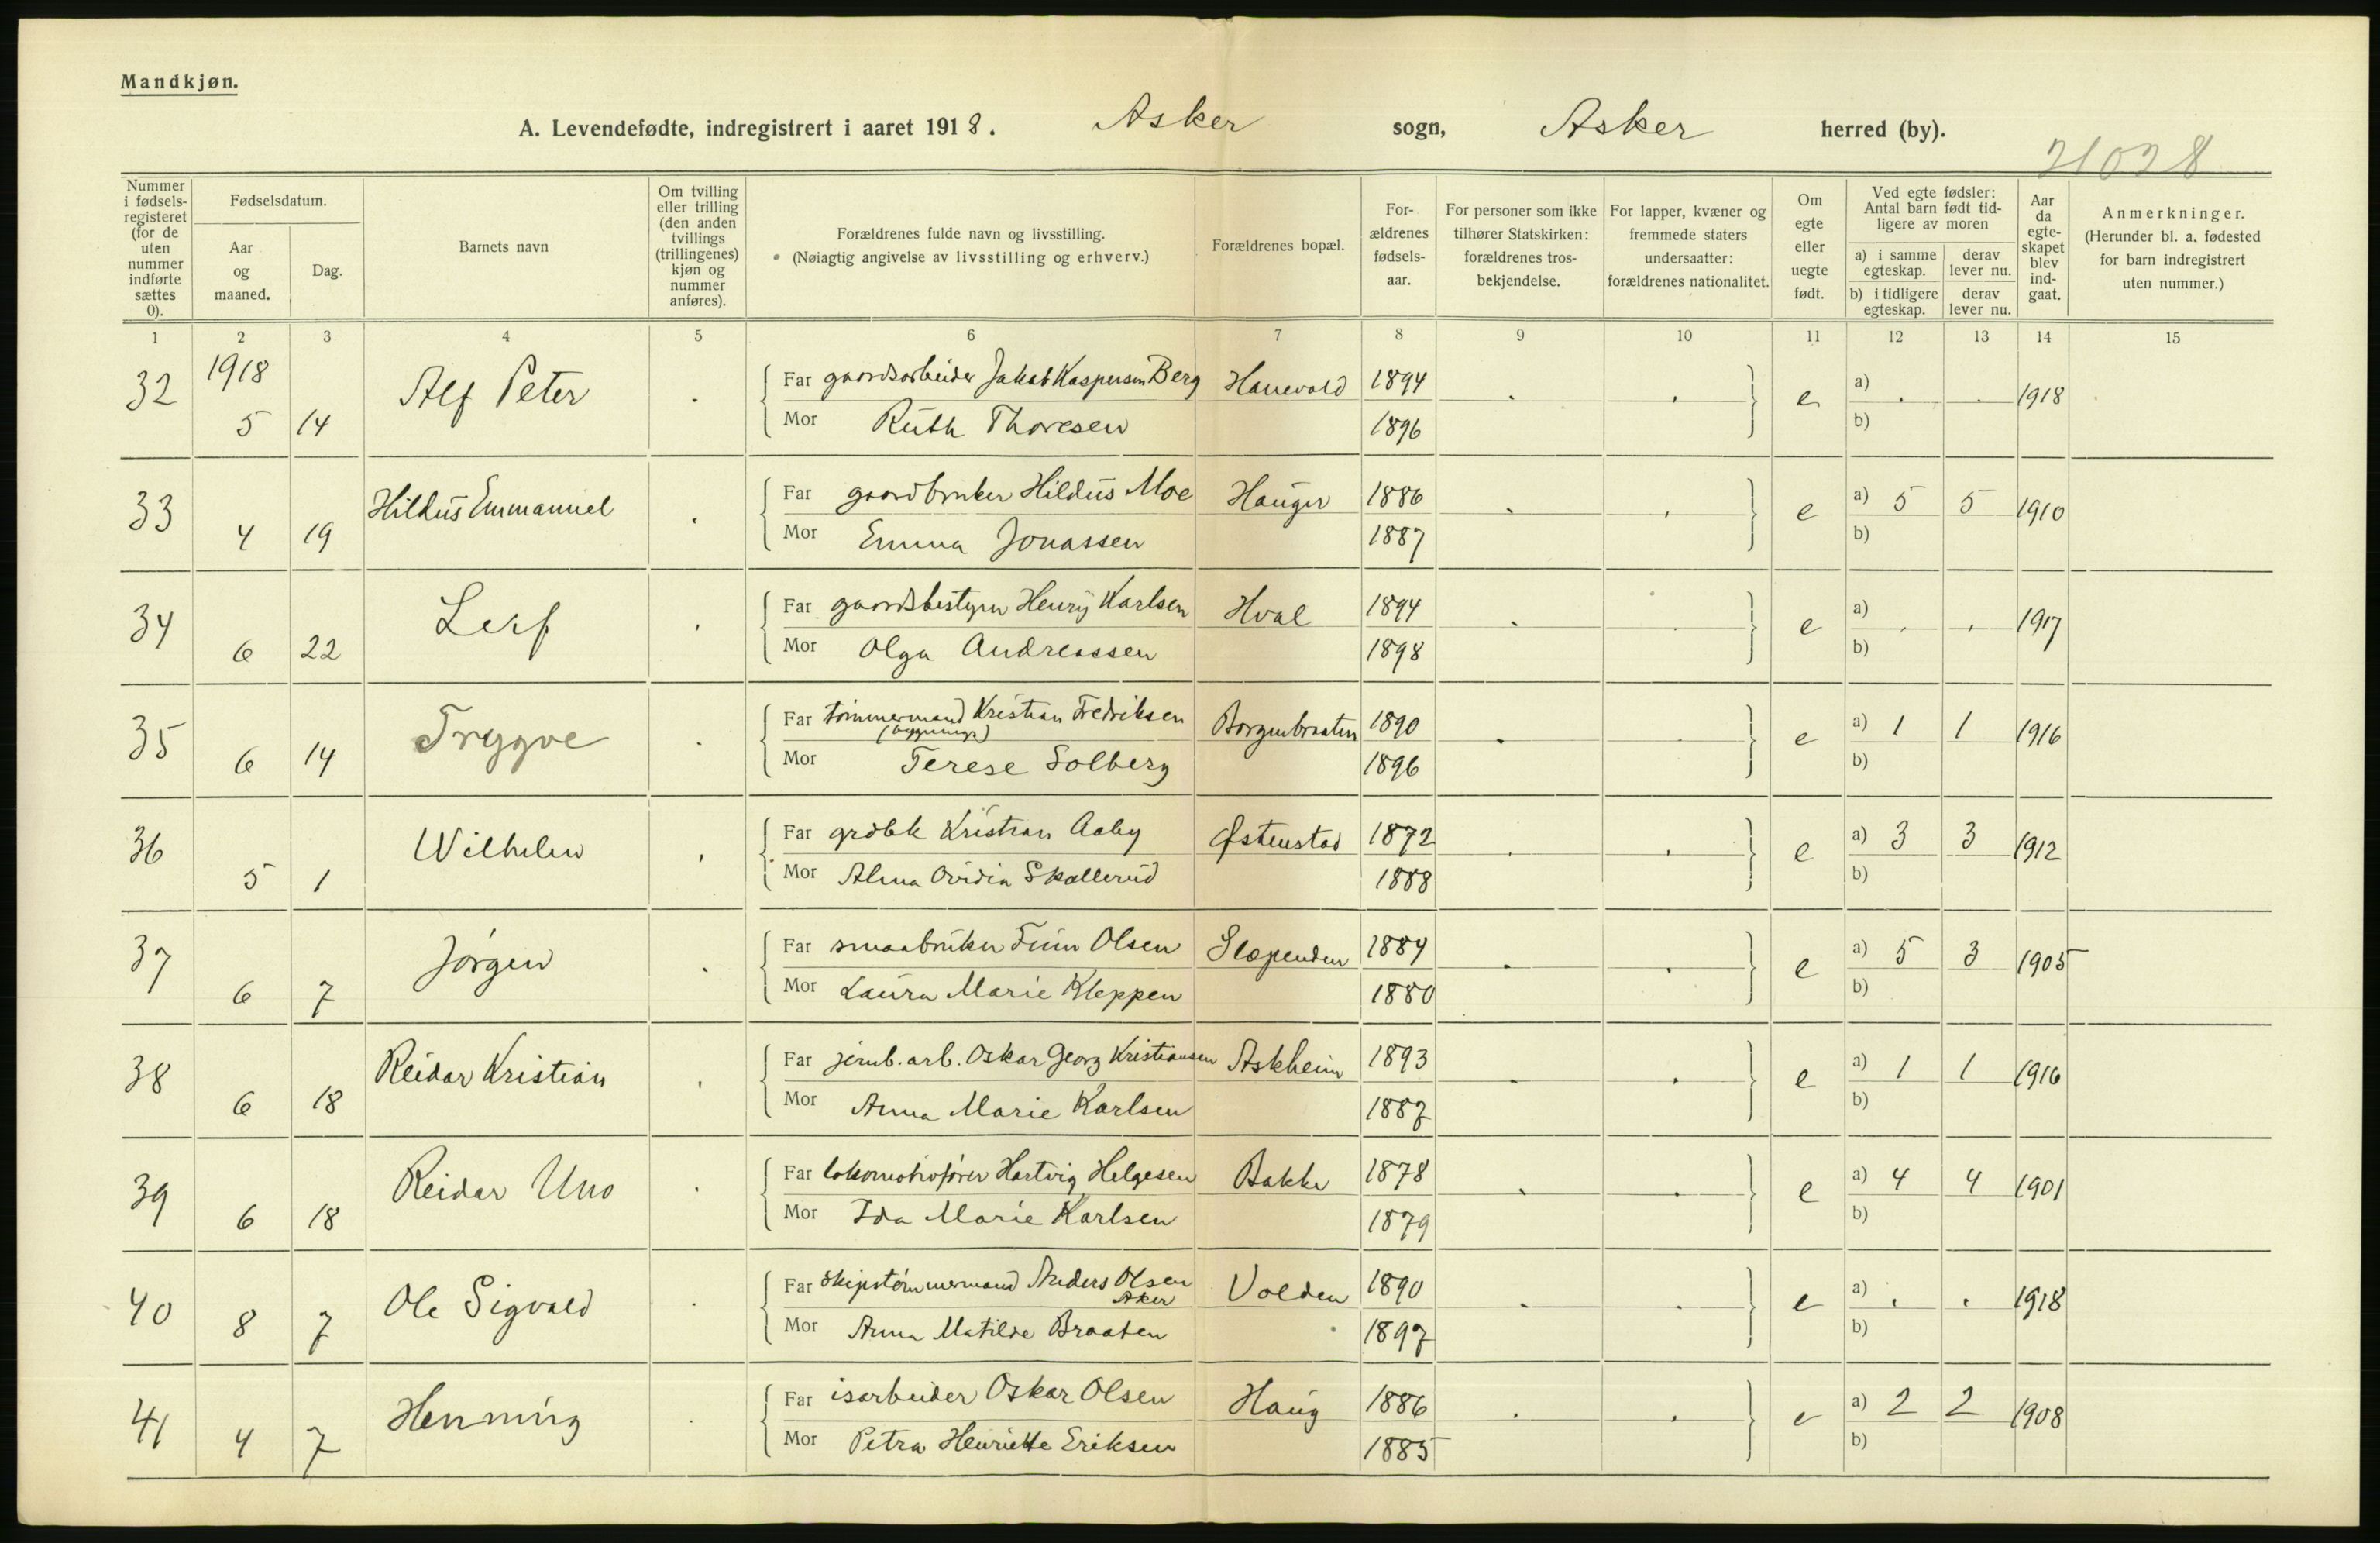 Mandkjøn.
A. Levendefødte, indregistrert i aaret 1918. Asker sogn, Asker herred (by).
21028
Nummer i fødsels-registeret (for de uten nummer indførte sættes 0).
Fødselsdatum.
Aar og maaned.
Dag.
Barnets navn
Om tvilling eller trilling (den anden tvillings (trillingenes) kjøn og nummer anføres).
Forældrenes fulde navn og livsstilling.
(Nøiagtig angivelse av livsstilling og erhverv.)
Forældrenes bopæl.
For-ældrenes fødsels-aar.
For personer som ikke tilhører Statskirken: forældrenes tros-bekjendelse.
For lapper, kvæner og fremmede staters undersaatter: forældrenes nationalitet.
Om egte eller uegte født.
Ved egte fødsler: Antal barn født tid-ligere av moren
a) i samme egteskap. derav lever nu.
b) i tidligere egteskap. derav lever nu.
Aar da egte-skapet blev ind-gaat.
Anmerkninger.
(Herunder bl. a. fødested for barn indregistrert uten nummer.)
1 2 3 4 5 6 7 8 9 10 11 12 13 14 15
32 1918 5 14 Alf Peter . Far gaardsarbeider Jakob Kaspersen Berg Hanevold 1894 . . e a) . . 1918
Mor Ruth Thoresen 1896 b)
33 4 19 Hildus Emmanuel . Far gaardbruker Hildus Moe Hauger 1886 . . e a) 5 5 1910
Mor Emma Jonassen 1887 b)
34 6 22 Leif . Far gaardsbestyrer Henry Karlsen Hval 1894 . . e a) . . 1917
Mor Olga Andreassen 1898 b)
35 6 14 Trygve . Far tømmermand Kristian Fredriksen Borgenbraaten 1890 . . e a) 1 1 1916
(bygnings)
Mor Terese Solberg 1896 b)
36 5 1 Wilhelm . Far grdbk Kristian Aaby Østenstad 1872 . . e a) 3 3 1912
Mor Alma Ovidia Skallerud 1888 b)
37 6 7 Jørgen . Far smaabruker Finn Olsen Slependen 1884 . . e a) 5 3 1905
Mor Laura Marie Kleppen 1880 b)
38 6 18 Reidar Kristian . Far jernb. arb. Oskar Georg Kristiansen Askheim 1893 . . e a) 1 1 1916
Mor Anna Marie Karlsen 1887 b)
39 6 18 Reidar Uno . Far lokomotivfører Hartvig Helgesen Bakke 1878 . . e a) 4 4 1901
Mor Ida Marie Karlsen 1879 b)
40 8 7 Ole Sigvald . Far Skipstømmermand Anders Olsen Volden 1890 . . e a) . . 1918
Aker
Mor Anna Matilde Braaten 1897 b)
41 4 7 Henning . Far isarbeider Oskar Olsen Haug 1886 . . e a) 2 2 1908
Mor Petra Henriette Eriksen 1885 b)